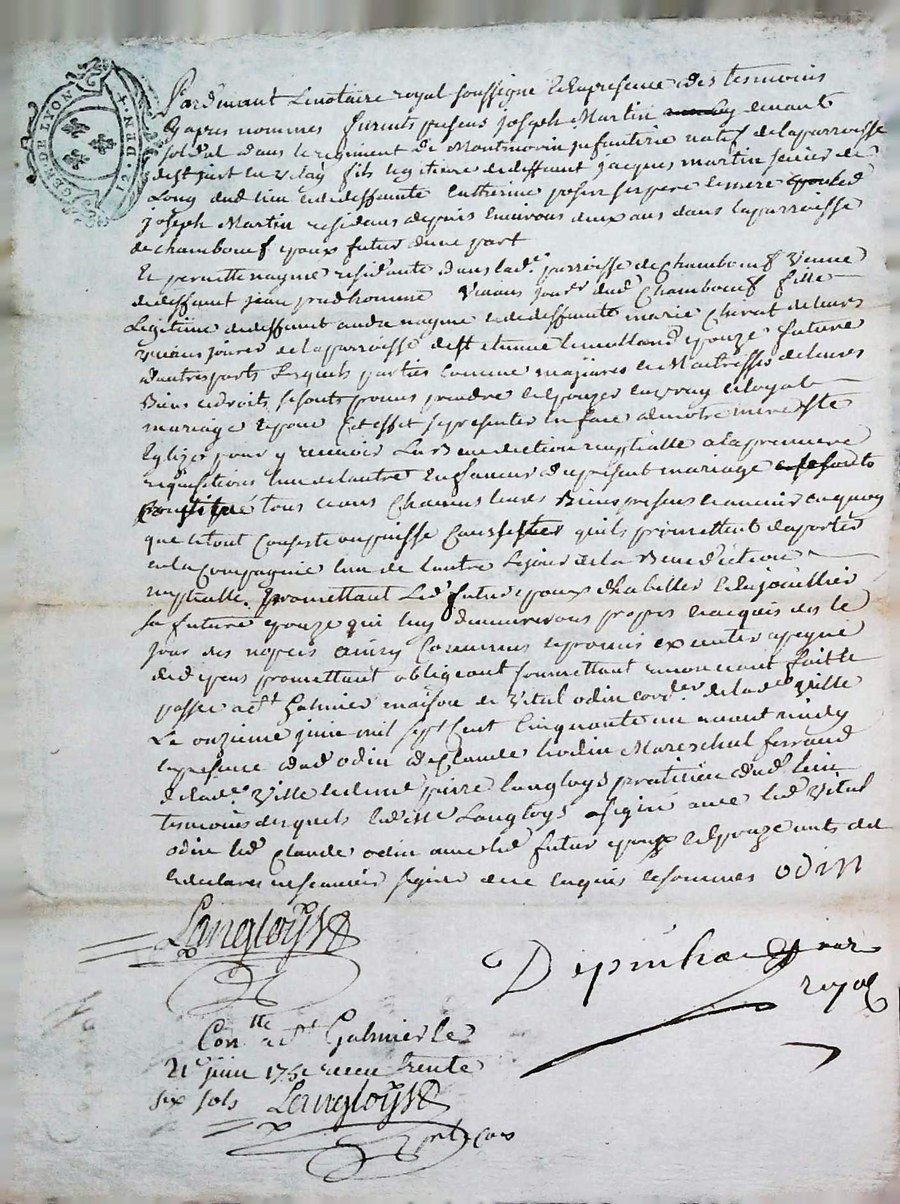 GEN. DE LYON
12 DEN.
Pardevant Le notaire royal soussigné et en presence des tesmoins
cy apres nommes furents presens joseph Martin cy devant
soldat dans le regiment de Montmorin jnfanterie natif de la parroisse
de st just en velay fils legitime de deffunt jacques martin
Long dud lieu et de deffunte Catherine ses pere et mere
joseph Martin residans depuis Environs deux ans dans la parroisse
de chambœuf epoux futur dune part
Et pernette nayme residante dans lad.e parroisse de Chambœuf veuve
de deffunt jean prudhomme vivans jour.er dud Chambœuf fille
Legitime de deffunt andre nayme et de deffunte marie Cherat de leurs
vivans jour.er de la parroisse de st etienne le mollard epouze future
dautres parts Lesquels parties comme majeures et Maitresses de leurs
Biens et droits se sonts promis prendre et epouzer en vray et loyal
mariage et pour Cet effet se presenter en face de notre mere ste
Eglize pour y recevoir La Benediction nuptialle a la premiere
requisitions lun de lautre En faveur du presant mariage se sonts
Constitué tous leurs Biens presens et a venir en quoy
que le tout Conciste ou puisse Consister quils promettent daporter
en la Compagnie lun de lautre Le jour de la Benediction
nuptialle. promettant Led futur epoux dhabiller et enjoaillier
sa future epouze qui luy demeurerons propres et acquis des le
jour des nopces ainsy Convenus et promis executer a peyne
de depens promettant obligeant soumettant renonceant fait et
passé a st Galmier maison de vital odin cord.er de lad.e ville
Le onzieme juin mil sept Cent Cinquante un avant midy
en presence dud odin de Claude hodin Mareschal ferrand
de lad.e ville et de me pierre langloys praticien dud lieu
tesmoins desquels led me Langloys a signé avec led vital
odin led Claude odin avec led futur epoux et epouze
declares ne scavoir signer de ce enquis et sommés odin
Langloys
Depinhac no.re
royal
Con.lle a st Galmier le
21e juin 1751 receu trente
six sols Langloys